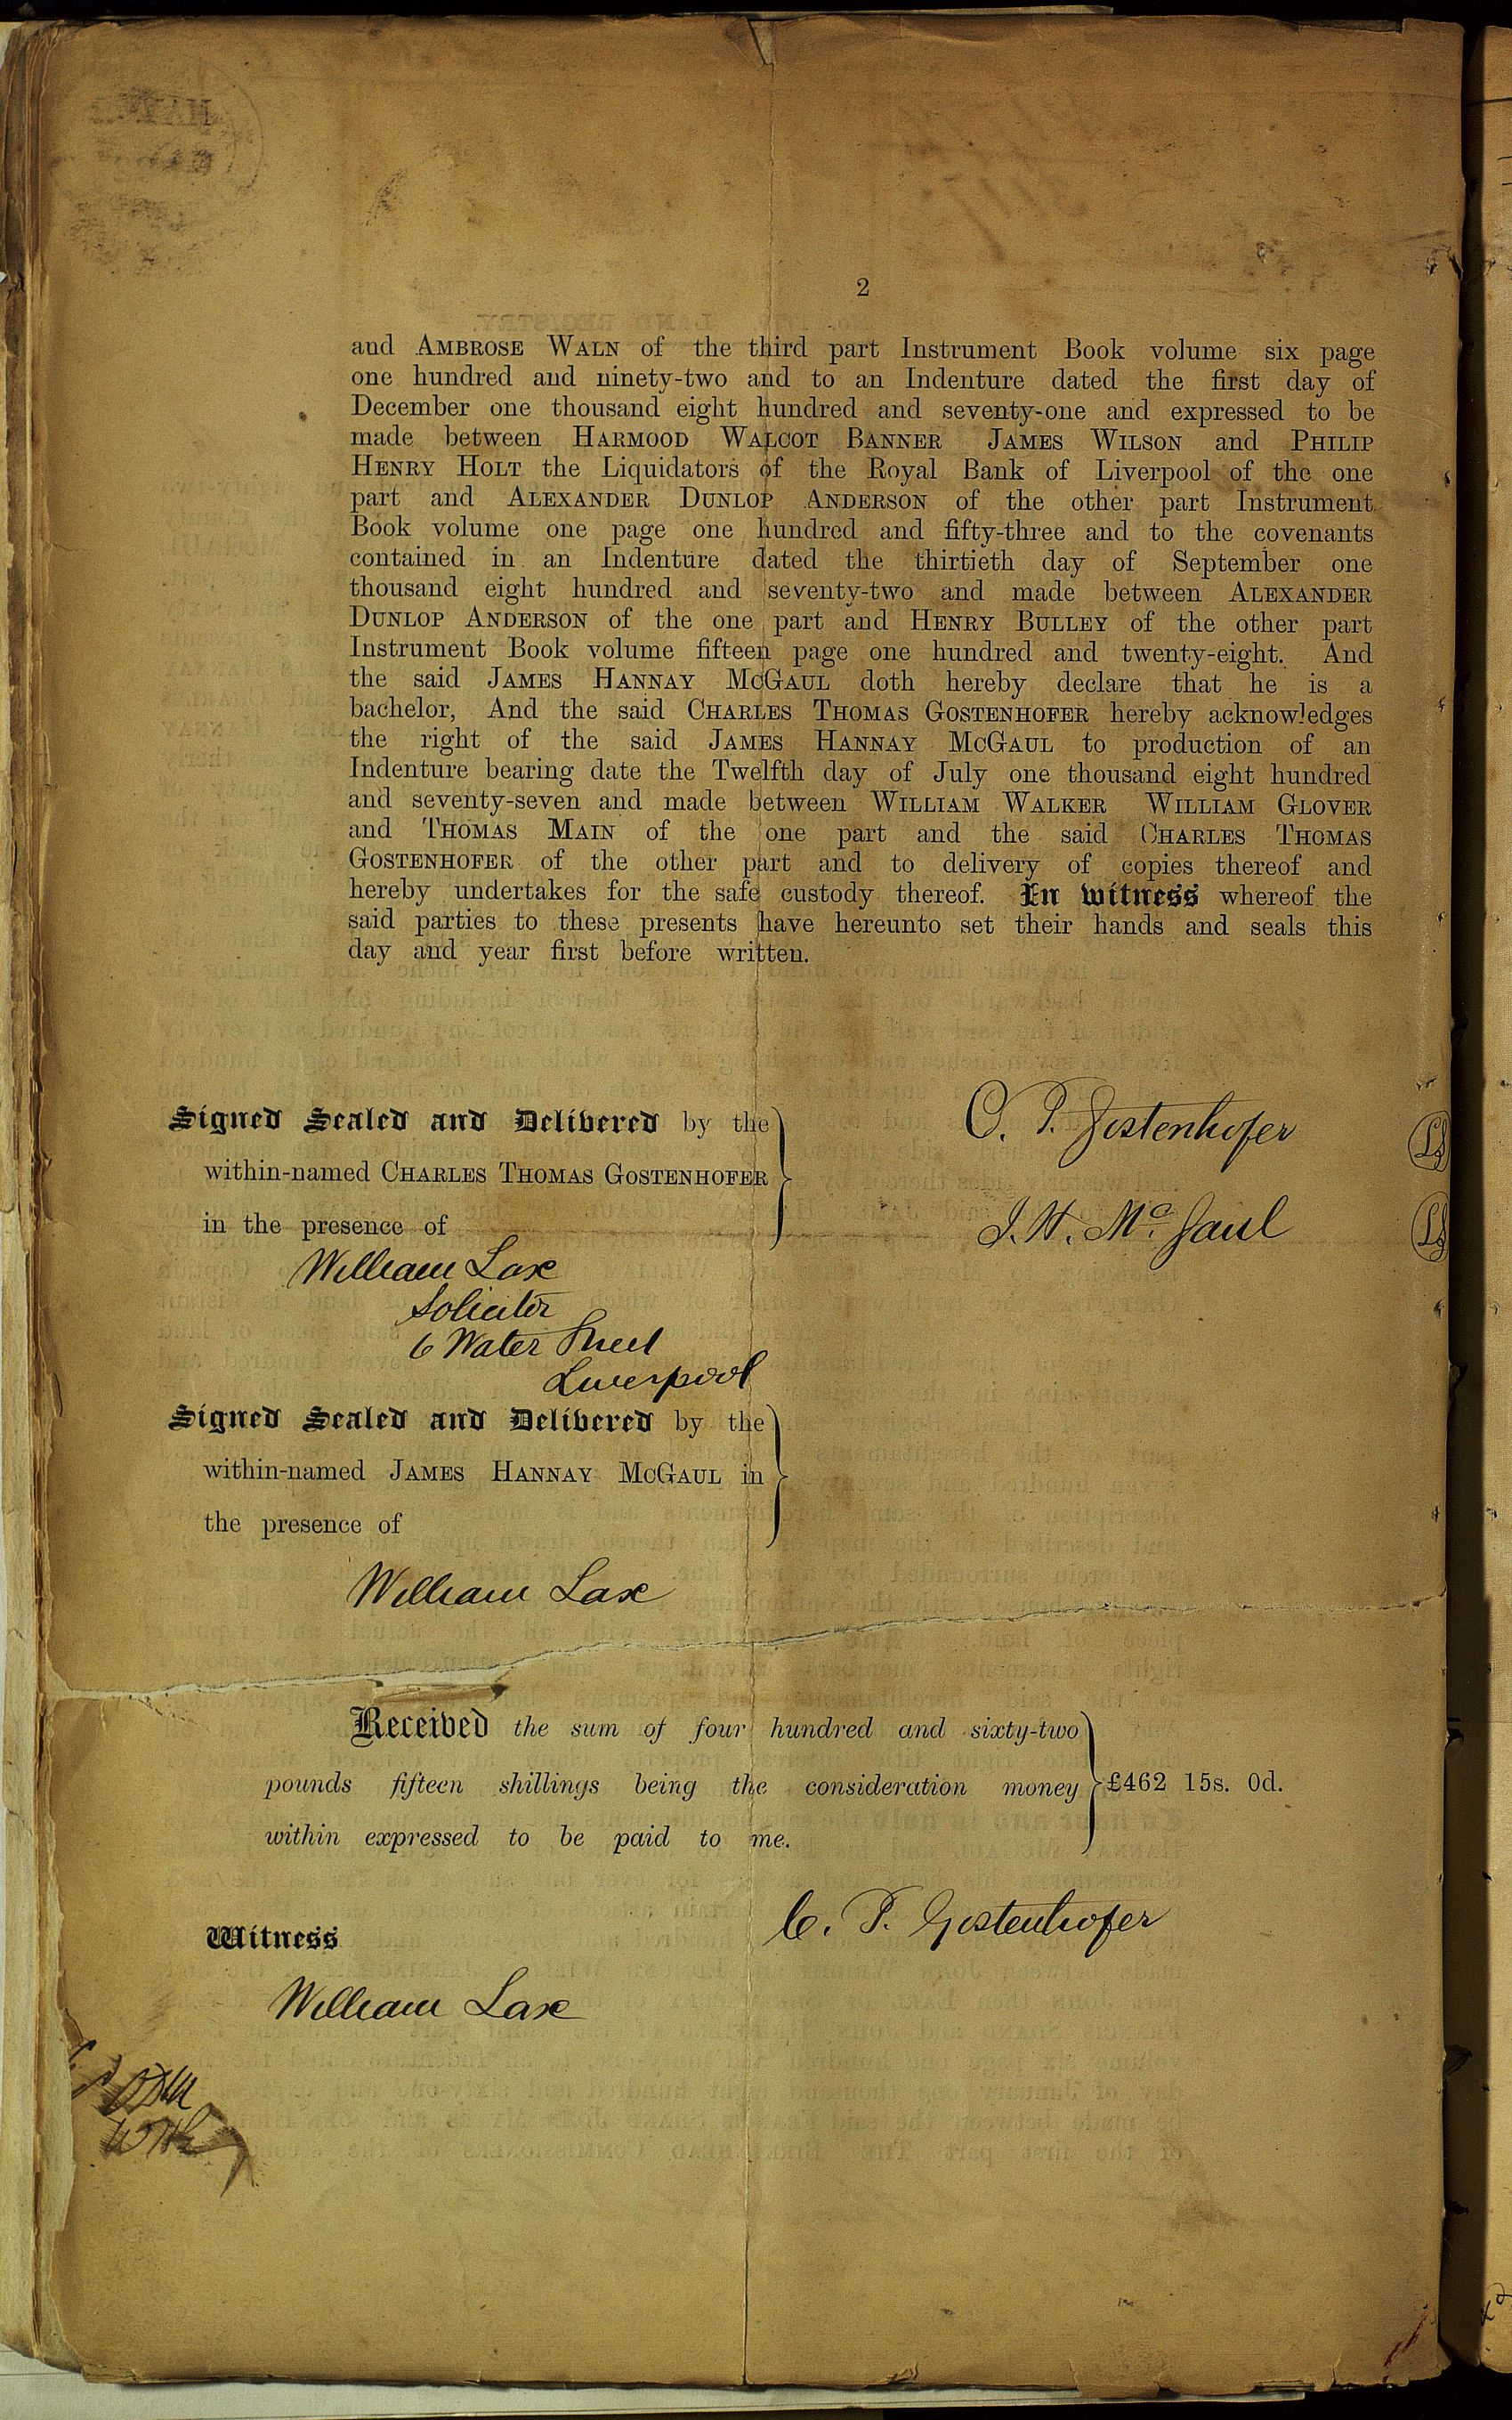 2
and AMBROSE WALN of the third part Instrument Book volume six page
one hundred and ninety-two and to an Indenture dated the first day of
December one thousand eight hundred and seventy-one and expressed to be
made between HARMOOD WALCOT BANNER JAMES WILSON and PHILIP
HENRY HOLT the Liquidators of the Royal Bank of Liverpool of the one
part and ALEXANDER DUNLOP ANDERSON of the other part Instrument
Book volume one page one hundred and fifty-three and to the covenants
contained in an Indenture dated the thirtieth day of September one
thousand eight hundred and seventy-two and made between ALEXANDER
DUNLOP ANDERSON of the one part and HENRY BULLEY of the other part
Instrument Book volume fifteen page one hundred and twenty-eight. And
the said JAMES HANNAY McGAUL doth hereby declare that he is a
bachelor, And the said CHARLES THOMAS GOSTENHOFER hereby acknowledges
the right of the said JAMES HANNAY McGAUL to production of an
Indenture bearing date the Twelfth day of July one thousand eight hundred
and seventy-seven and made between WILLIAM WALKER WILLIAM GLOVER
and THOMAS MAIN of the one part and the said CHARLES THOMAS
GOSTENHOFER of the other part and to delivery of copies thereof and
hereby undertakes for the safe custody thereof. In witness whereof the
said parties to these presents have hereunto set their hands and seals this
day and year first before written.
Signed Sealed and Delivered by the
within-named CHARLES THOMAS GOSTENHOFER
in the presence of
C. T. Gostenhofer
LS
J. H. McGaul
LS
William Lax
Solicitor
6 Water Street
Liverpool
Signed Sealed and Delivered by the
within-named JAMES HANNAY McGAUL in
the presence of
William Lax
Received the sum of four hundred and sixty-two
pounds fifteen shillings being the consideration money £462 15s. 0d.
within expressed to be paid to me.
C. T. Gostenhofer
Witness
William Lax